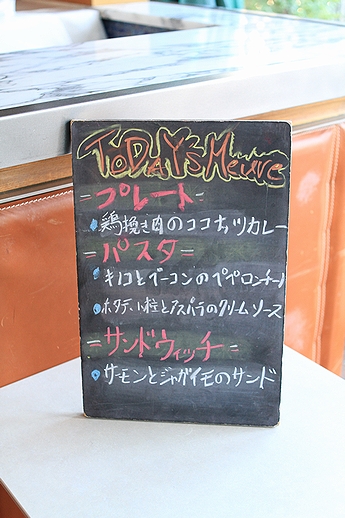 TODAY'S Menu
=プレート=
・鶏挽き肉のココナッツカレー
=パスタ=
・キノコとベーコンのペペロンチーノ
・ホタテ小柱とアスパラのクリームソース
=サンドウィッチ=
・サーモンとジャガイモのサンド